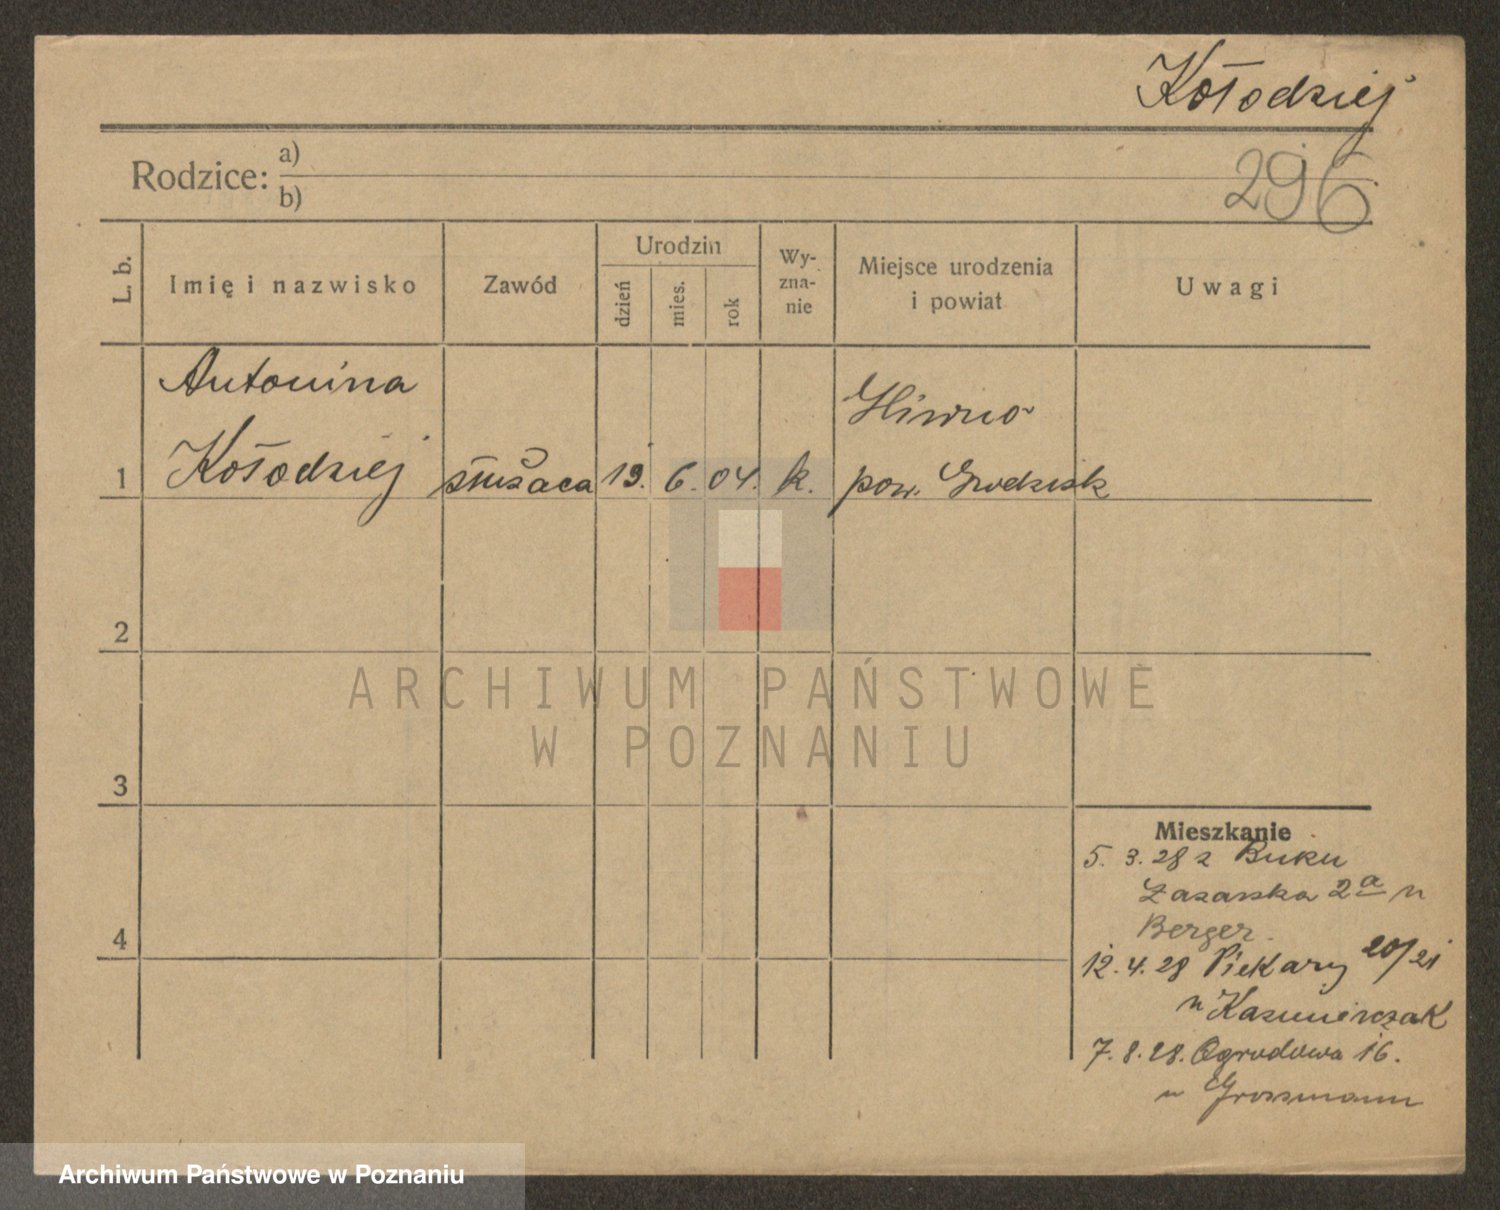 Kołodziej
Rodzice: a)
b)
296
L. b.
Imię i nazwisko
Zawód
Urodzin
dzień
mies.
rok
Wy-
zna-
nie
Miejsce urodzenia
i powiat
Uwagi
Antonina
1 Kołodziej służąca 19. 6. 04. k.
Gliwno
pow. Grodzisk
2
3
4
ARCHIWUM PAŃSTWOWE
W POZNANIU
Mieszkanie
5. 3. 28 z Buku
Łazarska 2a u
Berger.
12. 4. 28 Piekary 20/21
u Kazmierczak
7. 8. 28. Ogrodowa 16.
u Grossmann
Archiwum Państwowe w Poznaniu